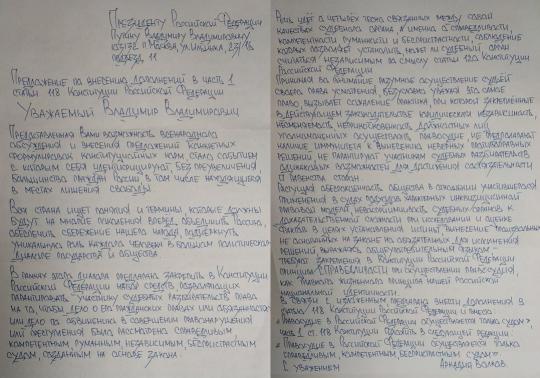 Президенту Российской Федерации
Путину Владимиру Владимировичу
103132 г. Москва, ул. Ильинка, 23/16
подъезд 11
Предложение по внесению дополнений в часть 1
статьи 118 Конституции Российской Федерации
Уважаемый Владимир Владимирович
Предоставленная Вами возможность всенародного
обсуждения и внесения предложений конкретных
формулировок конституционных норм стало событием
с которым себя идентифицируют, без преувеличения,
большинство граждан России в том числе находящиеся
в местах лишения свободы
Вся страна ищет понятия и термины, которые должны
будут на многие поколения вперед объединить Россию,
обеспечить сбережение нашего народа, подчеркнуть
уникальную роль каждого человека в большом политическом
диалоге государства и общества.
В рамках этого диалога предлагаю закрепить в Конституции
Российской Федерации набор средств позволяющих
гарантировать участнику судебных разбирательств права
на то, чтобы дело о его гражданских правах или обязанностях
или дело по обвинению в совершении правонарушения
или преступления было рассмотрено справедливым
компетентным, гуманным, независимым, беспристрастным
судом, созданным на основе закона.
Речь идёт о четырёх тесно связанных между собой
качествах судебного органа именно о справедливости,
компетентности гуманности и беспристрастности, соблюдение
которых позволяет установить может ли судебный орган
считаться независимым по смыслу статьи 120 Конституции
Российской Федерации
Принимая во внимание разумное осуществление судьёй
своего права усмотрения, безусловно уважая это самое
право, вызывает сожаление практика, при которой закреплённые
в действующем законодательстве юридическая независимость,
несменяемость неприкосновенность должностных лиц
уполномоченных осуществлять правосудие не предполагают
наличие иммунитета к вынесению неверных противоправных
решений не гарантируют участникам судебных разбирательств
одинаковых возможностей для достижения состязательности
и равенства сторон
Растущая обеспокоенность общества в отношении участившегося
применения в судах подходов
правовой модели, невосприимчивость судебных органов к
доказательственной стороне по исследованию и оценке
фактов в целях установления истины вынесение
не основанных на законе но обязательных для исполнения
решений выражаясь общеупотребительным языком –
требуют закрепления в Конституции Российской Федерации
принципа СПРАВЕДЛИВОСТИ при осуществлении правосудия,
как главного жизненного принципа нашей российской
национальной идентичности.
В связи с изложенным предлагаю внести дополнения в
статью 118 Конституции Российской Федерации и вместо:
«Правосудие в Российской Федерации осуществляется только судом»
часть 1 ст. 118 Конституции изложить в следующей редакции:
«Правосудие в Российской Федерации осуществляется только
справедливым, компетентным, беспристрастным судом»
С уважением Аркадия Волков.